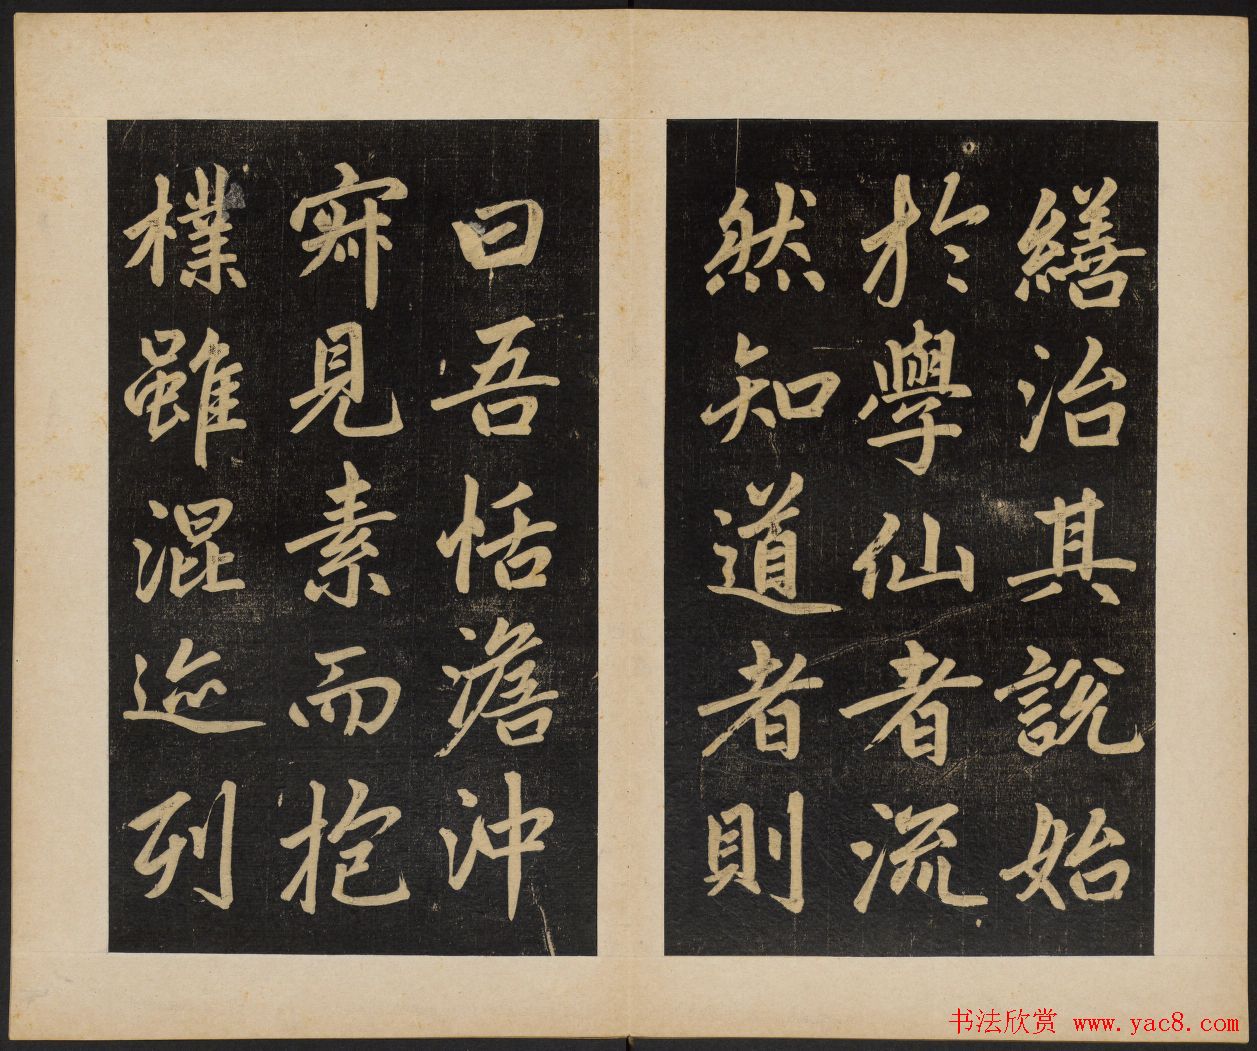 繕治其說始
於學仙者流
然知道者則
曰吾恬澹沖
寂見素而抱
樸雖混迹列
书法欣赏 www.yac8.com